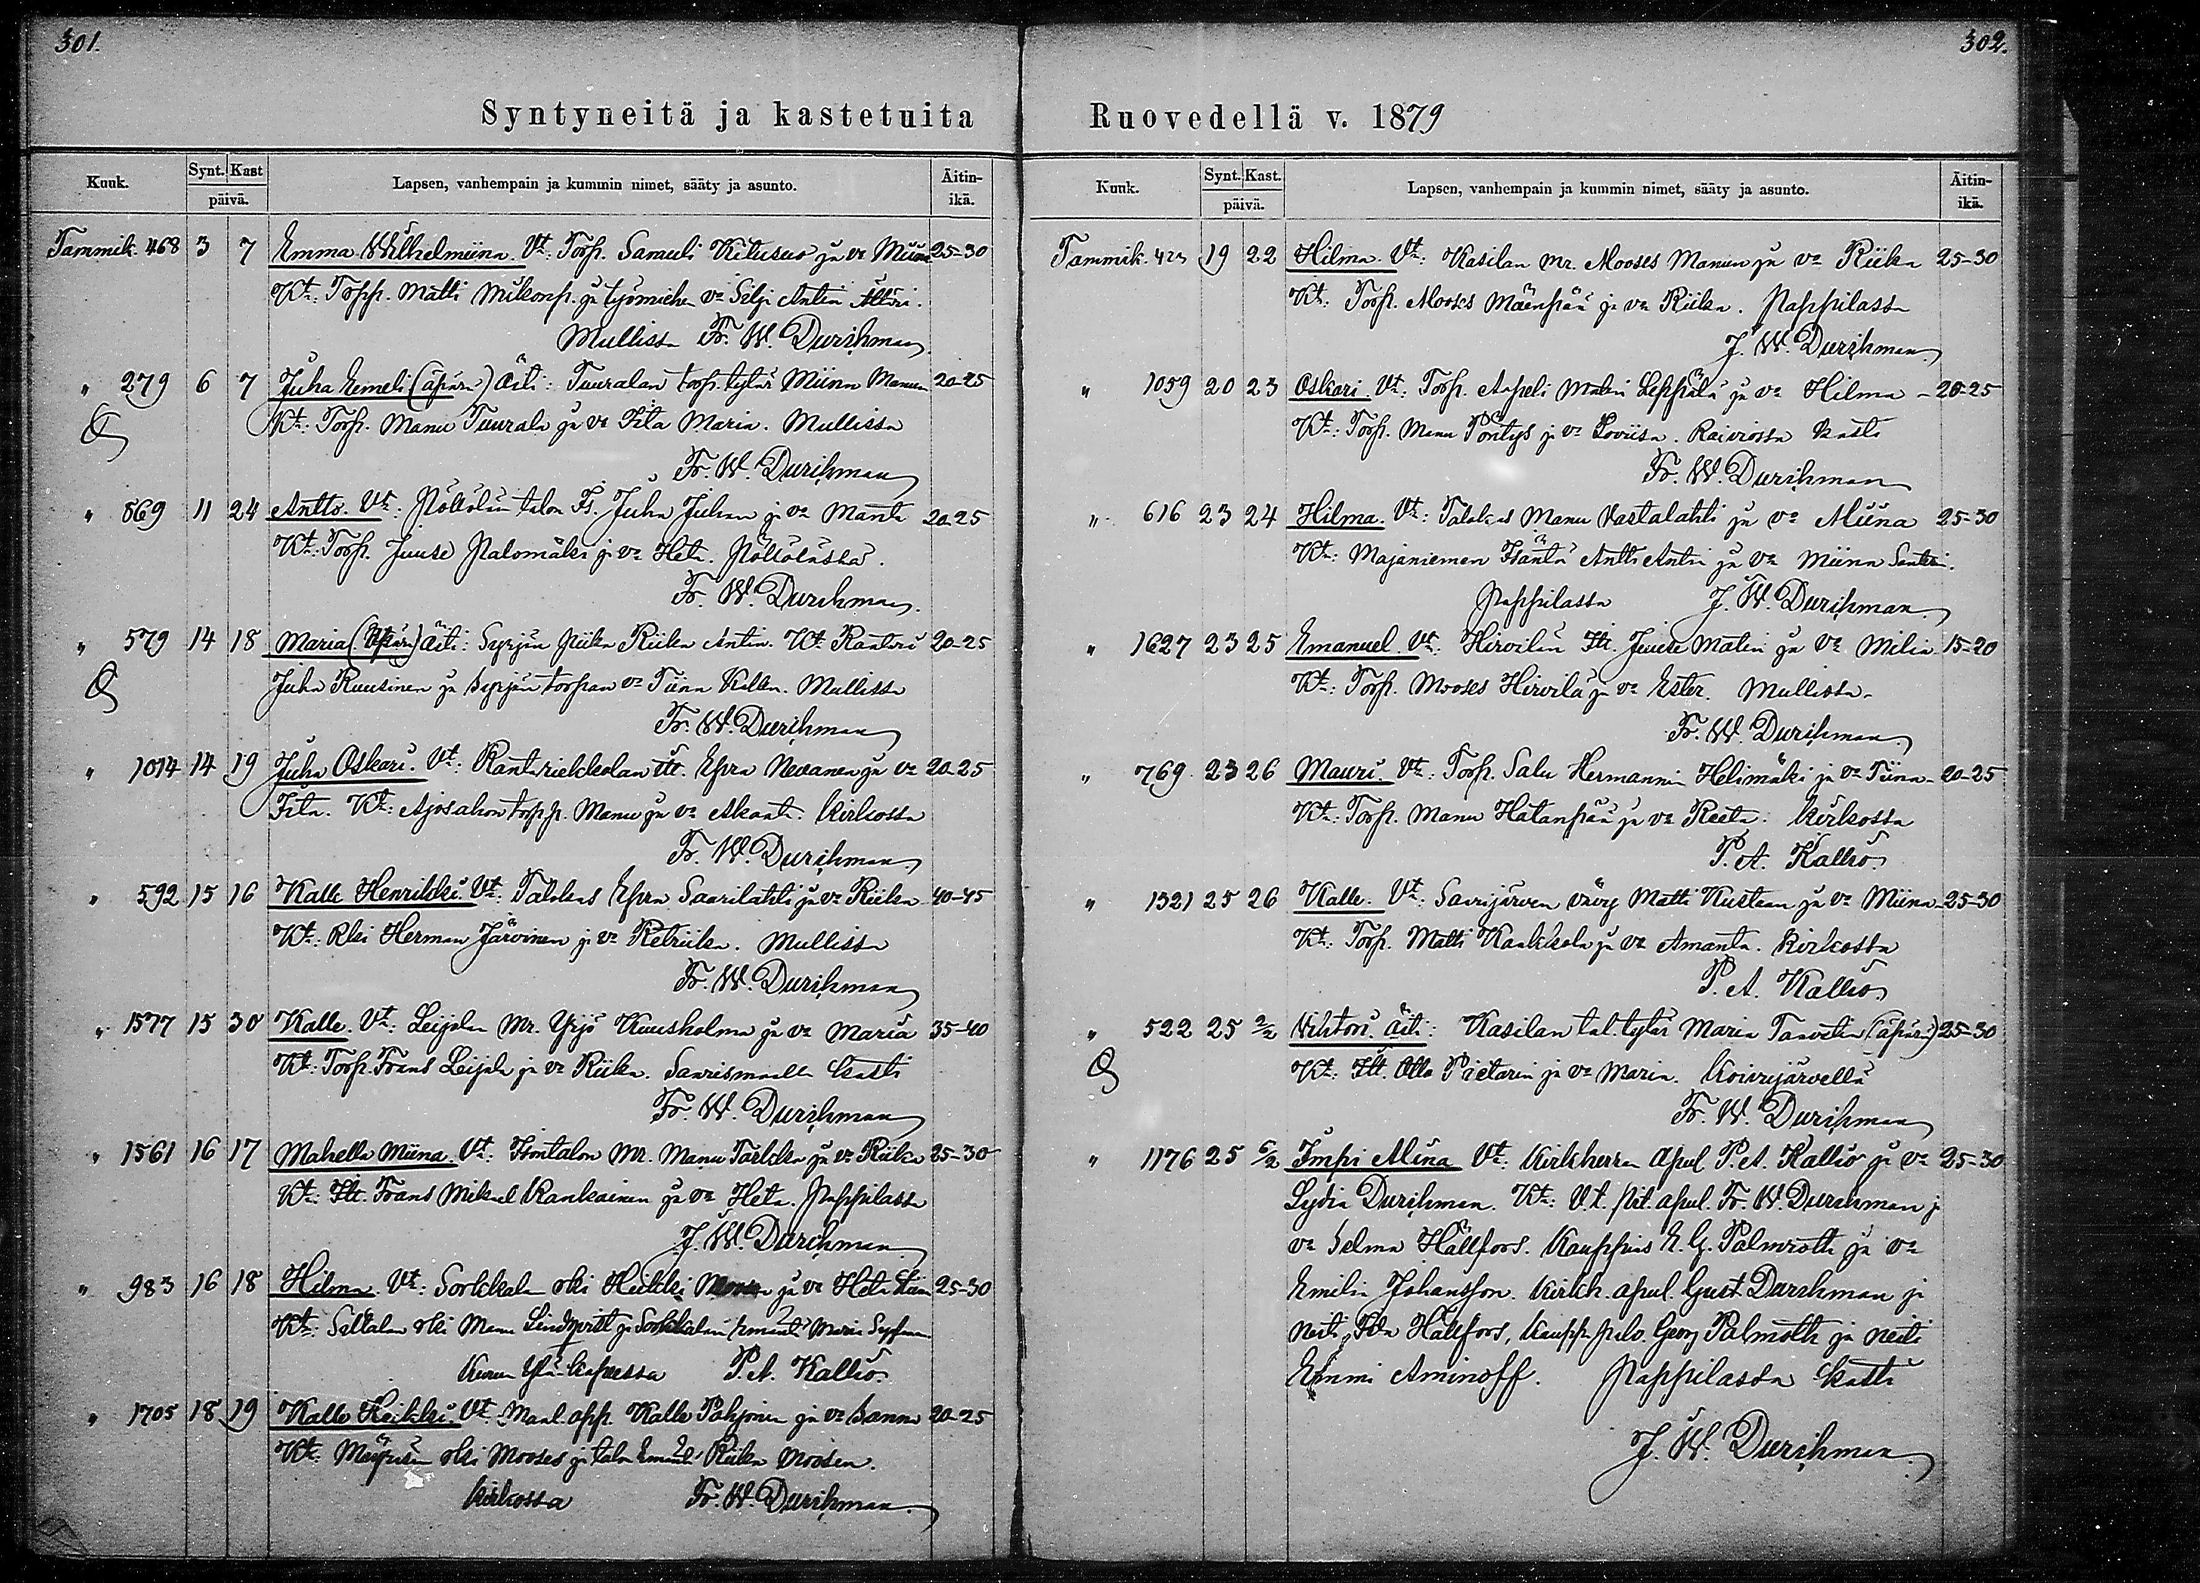 301.
Syntyneitä ja kastetuita
Kuuk.
Synt. Kast
päivä.
Lapsen, vanhempain ja kummin nimet, sääty ja asunto.
Äitin-
ikä.
Tammik. 468 3 7 Emma Wilhelmiina. Vt: Torp. Samuli Kitusuo ja vo Miina 25-30
Kt: Torpp. Matti Mikonp. ja työmiehen vo Silja Antin
Mullissa Fr. W. Durchman
" 279 6 7 Juha Eemeli (äpärä) Äiti: Tuuralan torp. tytär Miina Manun 20-25
Kt: Torp. Manu Tuurala ja vo Fita Maria. Mullissa
Fr. W. Durchman
" 869 11 24 Antto. Vt: Pöllölän talon Is. Juha Juhan ja vo Manta 20-25
Kt: Torp. Juuse Palomäki ja vo Heta. Pöllölässä.
Fr. W. Durchman.
" 579 14 18 Maria (Äpärä) Äiti: Syrjän piika Riika Antin. Kt: 20-25
Juha Ruusinen ja Syrjän torpan vo Tiina Kallen. Mullissa
Fr. W. Durchman
" 1014 14 19 Juha Oskari. Vt: Efra Nevanen ja vo 20-25
Fita. Kt: Ajosahon torpp. Manu ja vo Akaata. Kirkossa
Fr. W. Durchman
" 592 15 16 Kalle Henrikki. Vt: Efra Saarilahti ja vo Riika 40-45
Kt: Rki Herman Järvinen ja vo Retriika. Mullissa
Fr. W. Durchman
" 1577 15 30 Kalle. Vt: Leijalan Mr. Yrjö Kuusholma ja vo Maria 35-40
Kt: Torp. Frans Leijala ja vo Riika. kasti
Fr. W. Durchman
" 1561 16 17 Mahella Miina. Vt: Isontalon Mr. Manu ja vo Riika 25-30
Kt: Itt. Frans Mikael Kankainen ja vo Heta. Pappilassa
J. W. Durchman
" 983 16 18 Hilma Vt: Sorkkala rki Heikki ja vo Heta 25-30
Kt: rki Manu Lindqvist ja emäntä Maria
P. A. Kallio
" 1705 18 19 Kalle Heikki. Vt: app. Kalle Pohjonen ja vo Sanna 20-25
Kt: rki Mooses ja talon emäntä Riika Moosen.
Kirkossa Fr. W. Durchman.
302.
Ruovedellä v. 1879
Kuuk.
Synt. Kast.
päivä.
Lapsen, vanhempain ja kummin nimet, sääty ja asunto.
Äitin-
ikä.
Tammik. 423 19 22 Hilma. Vt: Kasilan Mr. Mooses Manun ja vo Riika 25-30
Kt: Torp. Mooses Mäenpää ja vo Riika. Pappilassa
J. W. Durchman
" 1059 20 23 Oskari. Vt: Torp. Aapeli Leppälä ja vo Hilma 20-25
Kt: Torp. Manu Pöntys ja vo Loviisa. kasti
Fr. W. Durchman
" 616 23 24 Hilma. Vt: Manu Vastalahti ja vo Miina 25-30
Kt: Majaniemen Isäntä Antti Antin ja vo Miina
Pappilassa J. W. Durchman
" 1627 23 25 Emanuel. Vt: Hirvilän Itt. Juuse Matin ja vo Milia 15-20
Kt: Torp. Mooses Hirvilä ja vo Ester. Mullissa
Fr. W. Durchman
" 769 23 26 Mauri. Vt: Torp. Salu Hermanni Helimäki ja vo Tiina 20-25
Kt: Torp. Manu Hatanpää ja vo Reeta. Kirkossa
P. A. Kallio
" 1321 25 26 Kalle. Vt: Saarijärven vävy Matti Kustaan ja vo Miina 25-30
Kt: Torp. Matti Kaakkola ja vo Amanta. Kirkossa
P. A. Kallio
" 522 25 2/2 Wihtori. Äiti: Kasilan tal. tytär Maria Taavetin (äpärä) 25-30
Kt: Itt. Otto Pietarin ja vo Maria. Koivujärvellä
Fr. W. Durchman
" 1176 25 6/2 Impi Alina Vt: Kirkherran apul P. A. Kallio ja vo 25-30
Lydia Durchman. Kt: V. t. pit. apul. Fr. W. Durchman ja
vo Selma Hällfors. Kauppias E. G. Palmroth ja vo
Emilia Johansson. Kirkh. apul Gust. Durchman ja
neiti Ida Hällfors, Kaupp. palv. Georg Palmroth ja neiti
Emmi Aminoff. Pappilassa kasti
J. W. Durchman